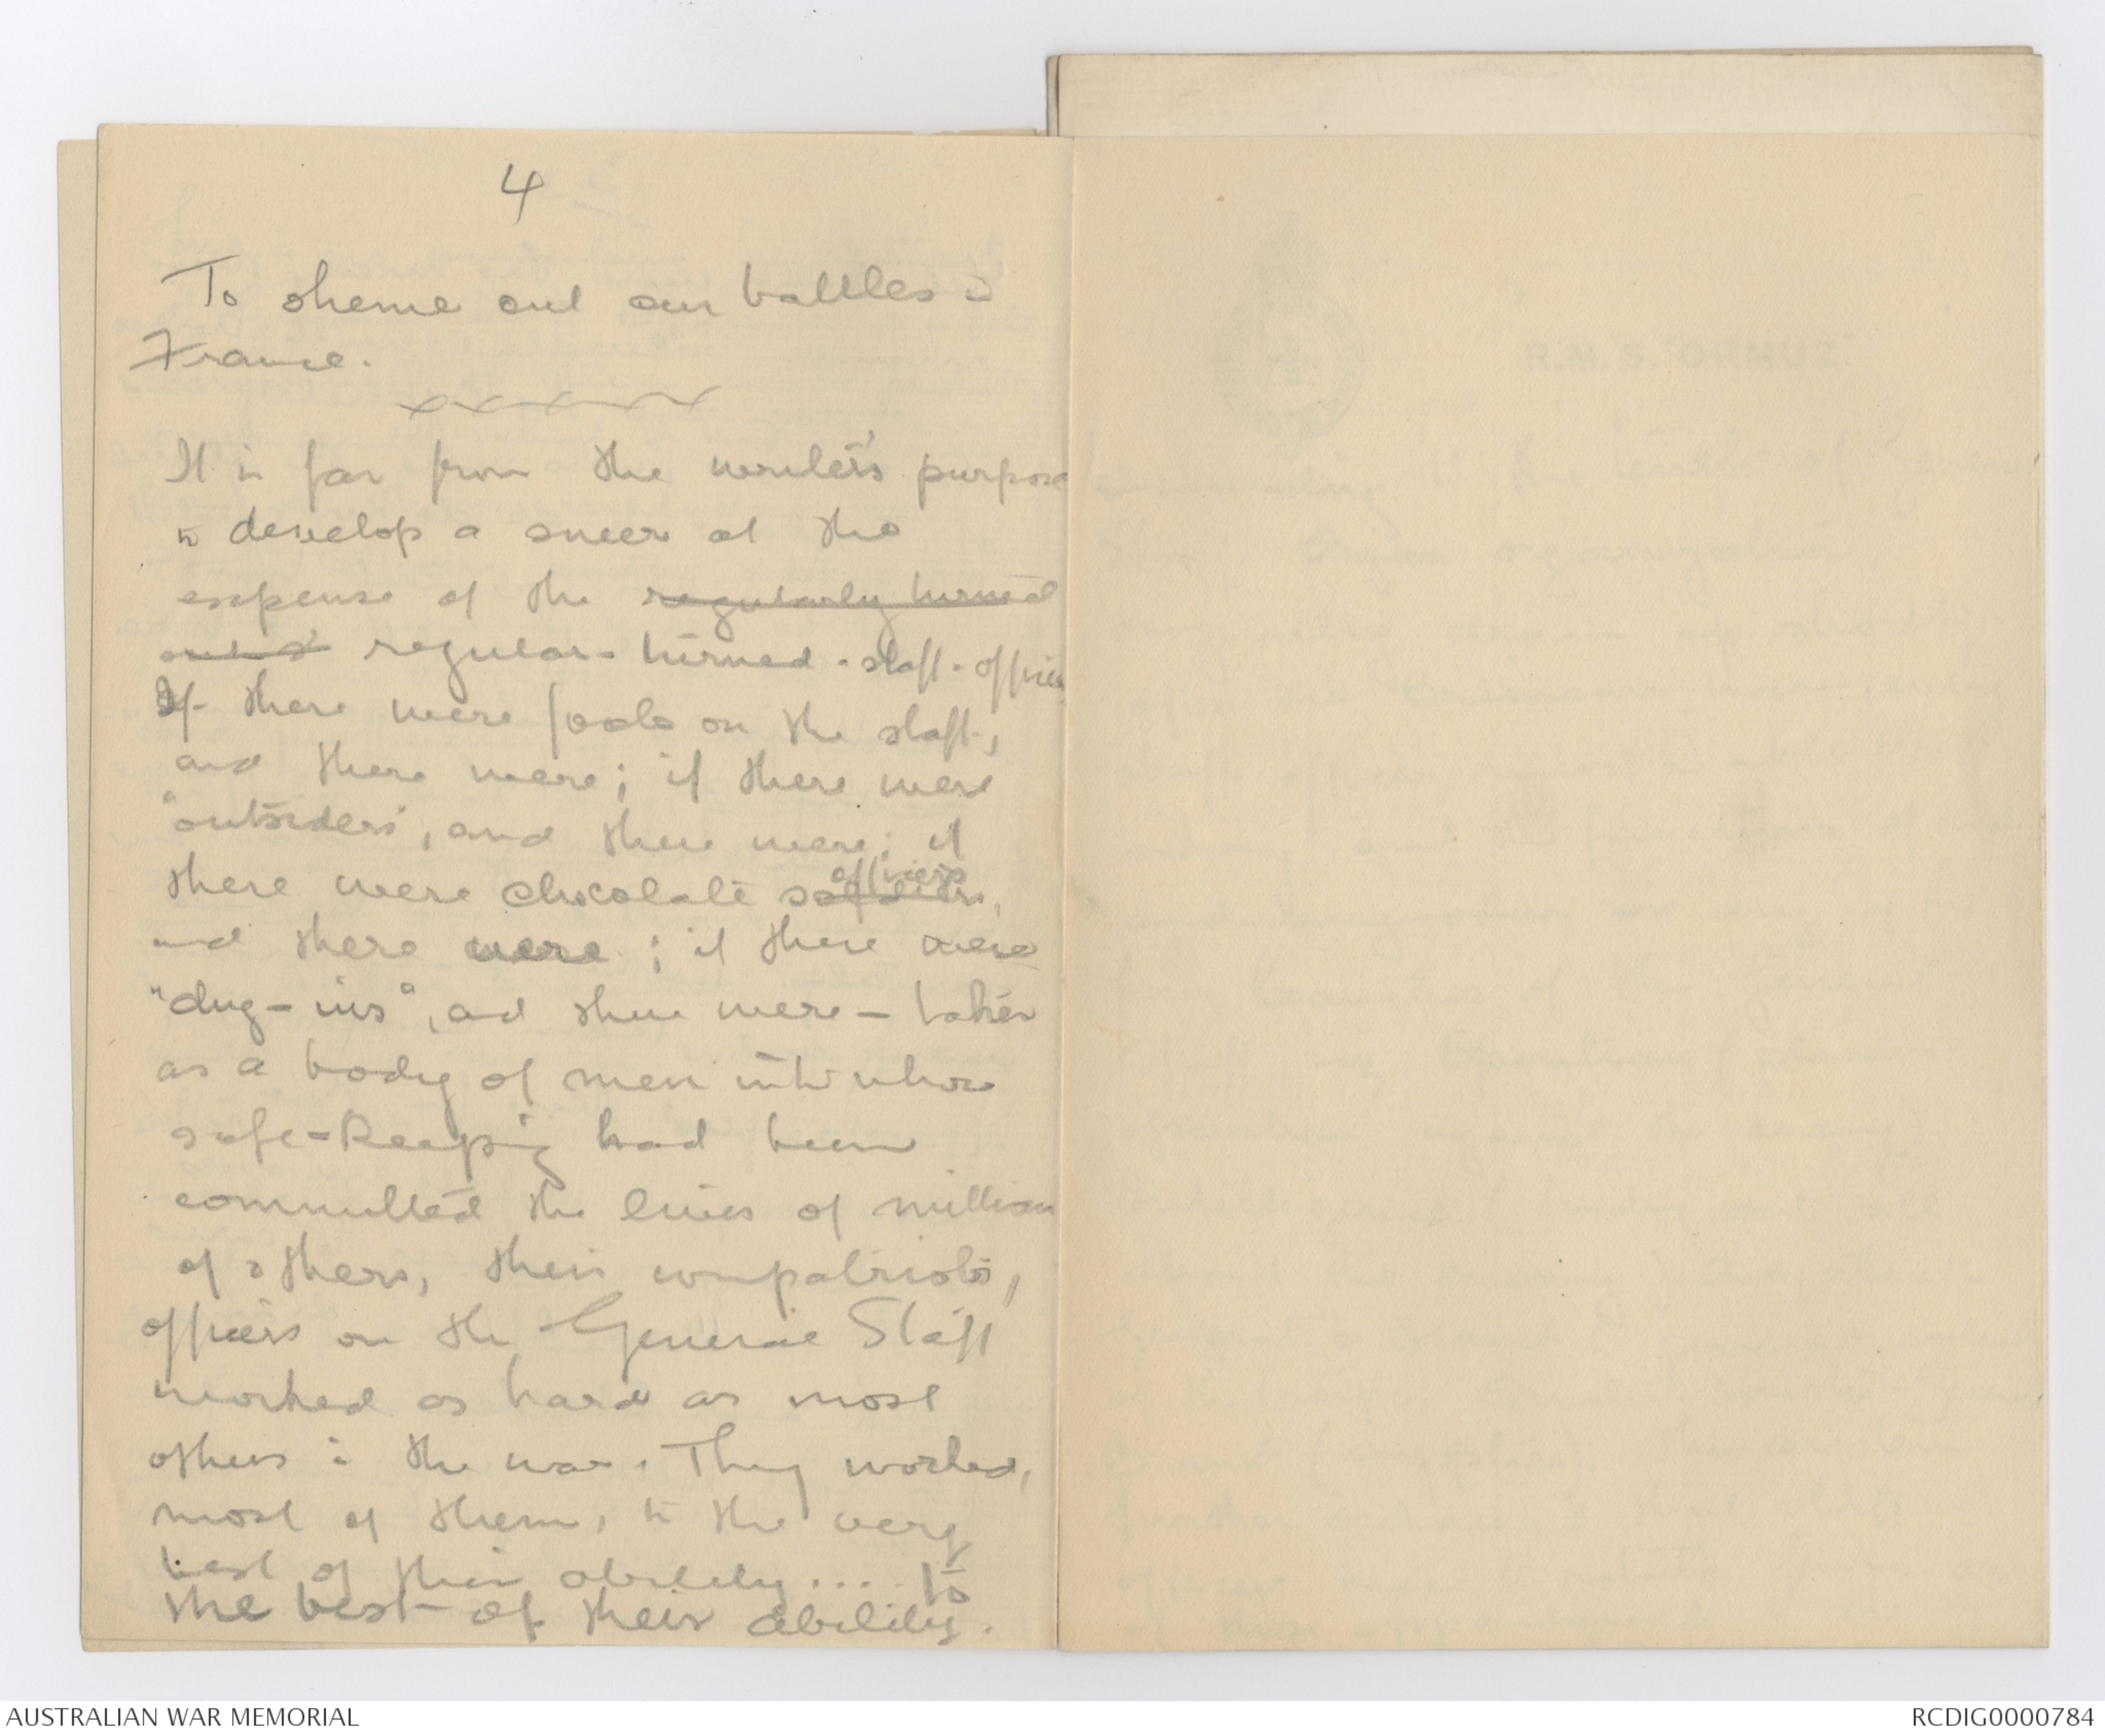 4
To sheme out our battles in
France.
It is far from the writer's purpose
to develop a sneer at the
expense of the regularly turned
regular-turned-staff-officer
If there were fools on the staff,
and there were; if there were
"outsiders", and there were; if
there were chocolate soldiers officers,
and there were; if there were
"dug-ins", and there were - taken
as a body of men into whose
safe-keeping had been
committed the lives of millions
of others, their compatriots,
officers on the General Staff
worked as hard as most
others in the war. They worked,
most of them, to the very
best of their ability .... to
the best of their ability.
R.M.S. "ORMUZ."
AUSTRALIAN WAR MEMORIAL
RCDIG0000784